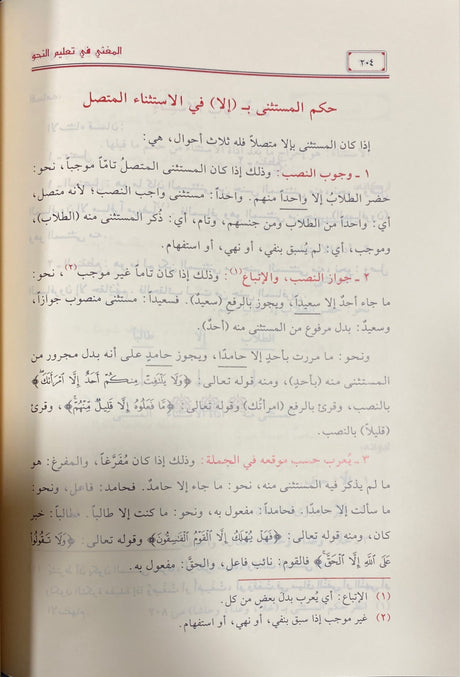 المغني في تعليم النحو
٢٠٤
حكم المستثنى بـ (إلا) في الاستثناء المتصل
إذا كان المستثنى بإلا متصلاً فله ثلاث أحوال، هي:
١ ـ وجوب النصب: وذلك إذا كان المستثنى المتصلُ تامّاً موجباً، نحو:
حضر الطلابُ إلا واحداً منهم. واحداً: مستثنى واجب النصب؛ لأنه متصل،
أي: واحداً من الطلاب ومن جنسهم، وتام، أي: ذُكر المستثنى منه (الطلاب)،
وموجب، أي: لم يُسبق بنفي، أو نهي، أو استفهام.
٢ ـ جواز النصب، والإتباع(١): وذلك إذا كان تاماً غير موجب(٢)، نحو:
ما جاء أحدٌ إلا سعيداً، ويجوز بالرفعِ (سعيدٌ). فسعيداً: مستثنى منصوب جوازاً،
وسعيدٌ: بدل مرفوع من المستثنى منه (أحدٌ).
ونحو: ما مررت بأحدٍ إلا حامدا، ويجوز حامدٍ على أنه بدل مجرور من
المستثنى منه (بأحدٍ)، ومنه قوله تعالى: ﴿وَلَا يَلْتَفِتْ مِنكُمْ أَحَدٌ إِلَّا ٱمْرَأَتَكَ﴾
بالنصب، وقرئ بالرفع (امرأتُك) وقوله تعالى: ﴿مَّا فَعَلُوهُ إِلَّا قَلِيلٌ مِّنْهُمْ﴾، وقرئ
(قليلاً) بالنصب.
٣ ـ يُعرب حسب موقعه في الجملة: وذلك إذا كان مُفَرَّغاً، والمفرغ: هو
ما لم يذكر فيه المستثنى منه، نحو: ما جاء إلا حامدٌ. فحامد: فاعل، ونحو:
ما سألت إلا حامدًا، فحامداً: مفعول به، ونحو: ما كنت إلا طالباً. فطالباً: خبر
كان، ومنه قوله تعالى: ﴿فَهَلْ يُهْلَكُ إِلَّا ٱلْقَوْمُ ٱلْفَٰسِقُونَ﴾ وقوله تعالى: ﴿وَلَا تَقُولُوا۟
عَلَى ٱللَّهِ إِلَّا ٱلْحَقَّ﴾ فالقوم: نائب فاعل، والحقَّ: مفعول به.
(١) الإتباع: أي يُعرب بدلَ بعضٍ من كل.
(٢) غير موجب إذا سبق بنفي، أو نهي، أو استفهام.